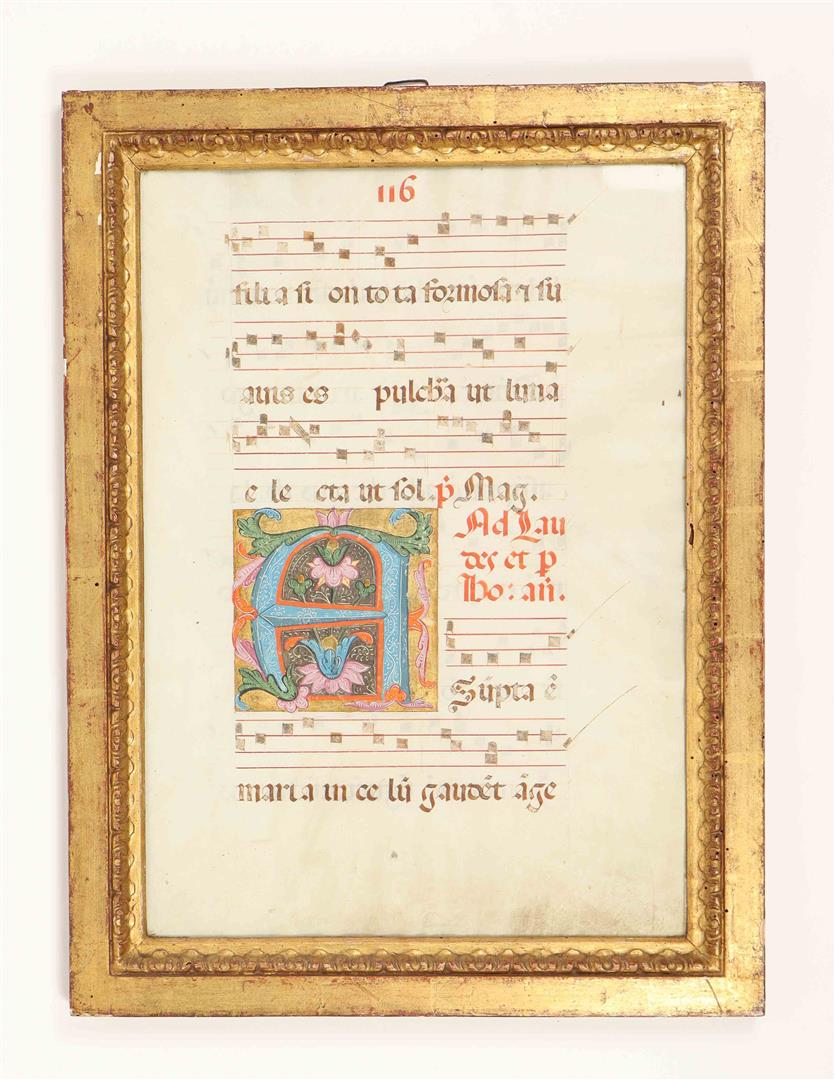 116
filia si on tota formosa ⁊ su
auis es pulchͬa ut luna
e le cta ut sol. p̄ Mag.
Ad Lau
des et p
horam̄.
A Sūpta ē
maria in ce lū gaudēt āge